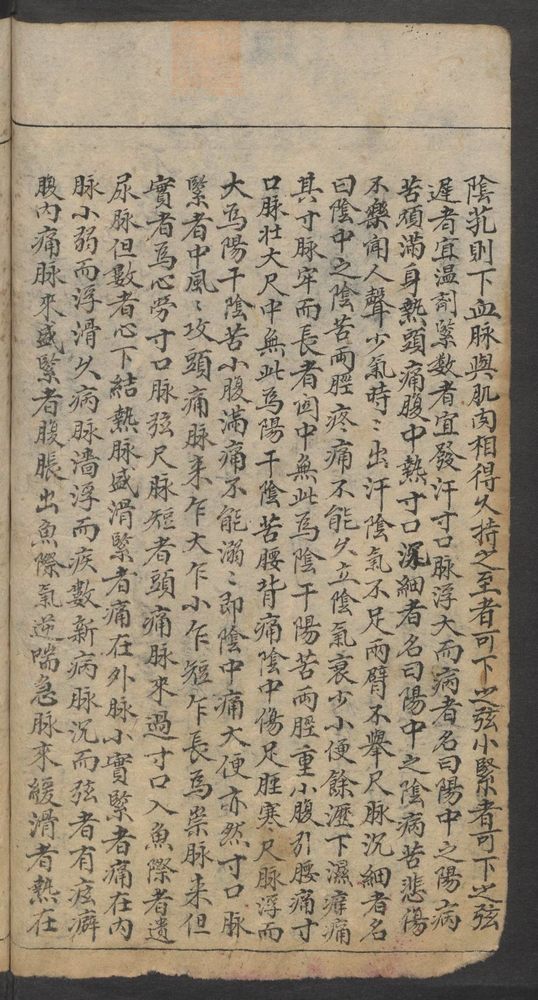 陰芤則下血脉與肌肉相得久持之至者可下之弦小緊者可下之弦
遲者宜温劑緊数者宜發汗寸口脉浮大而病者名曰陽中之陽病
苦煩滿身熱頭痛腹中熱寸口深細者名曰陽中之陰病苦悲傷
不樂聞人聲少氣時〻出汗陰氣不足兩臂不舉尺脉沉細者名
曰陰中之陰苦兩脛疼痛不能久立陰氣衰少小便餘瀝下濕癢痛
其寸脉牢而長者関中無此為陰干陽苦兩脛重小腹引腰痛寸
口脉壮大尺中無此為陽干陰苦腰背痛陰中傷足脛寒尺脉浮而
大為陽干陰苦小腹滿痛不能溺〻即陰中痛大便亦然寸口脉
緊者中風〻攻頭痛脉来乍大乍小乍短乍長為祟脉来但
實者為心勞寸口脉弦尺脉短者頭痛脉來過寸口入魚際者遺
尿脉但數者心下結熱脉盛滑緊者痛在外脉小實緊者痛在内
脉小弱而浮滑久病脉濇浮而疾數新病脉沉而弦者有痃癖
腹内痛脉来盛緊者腹脹出魚際氣逆喘急脉来緩滑者熱在